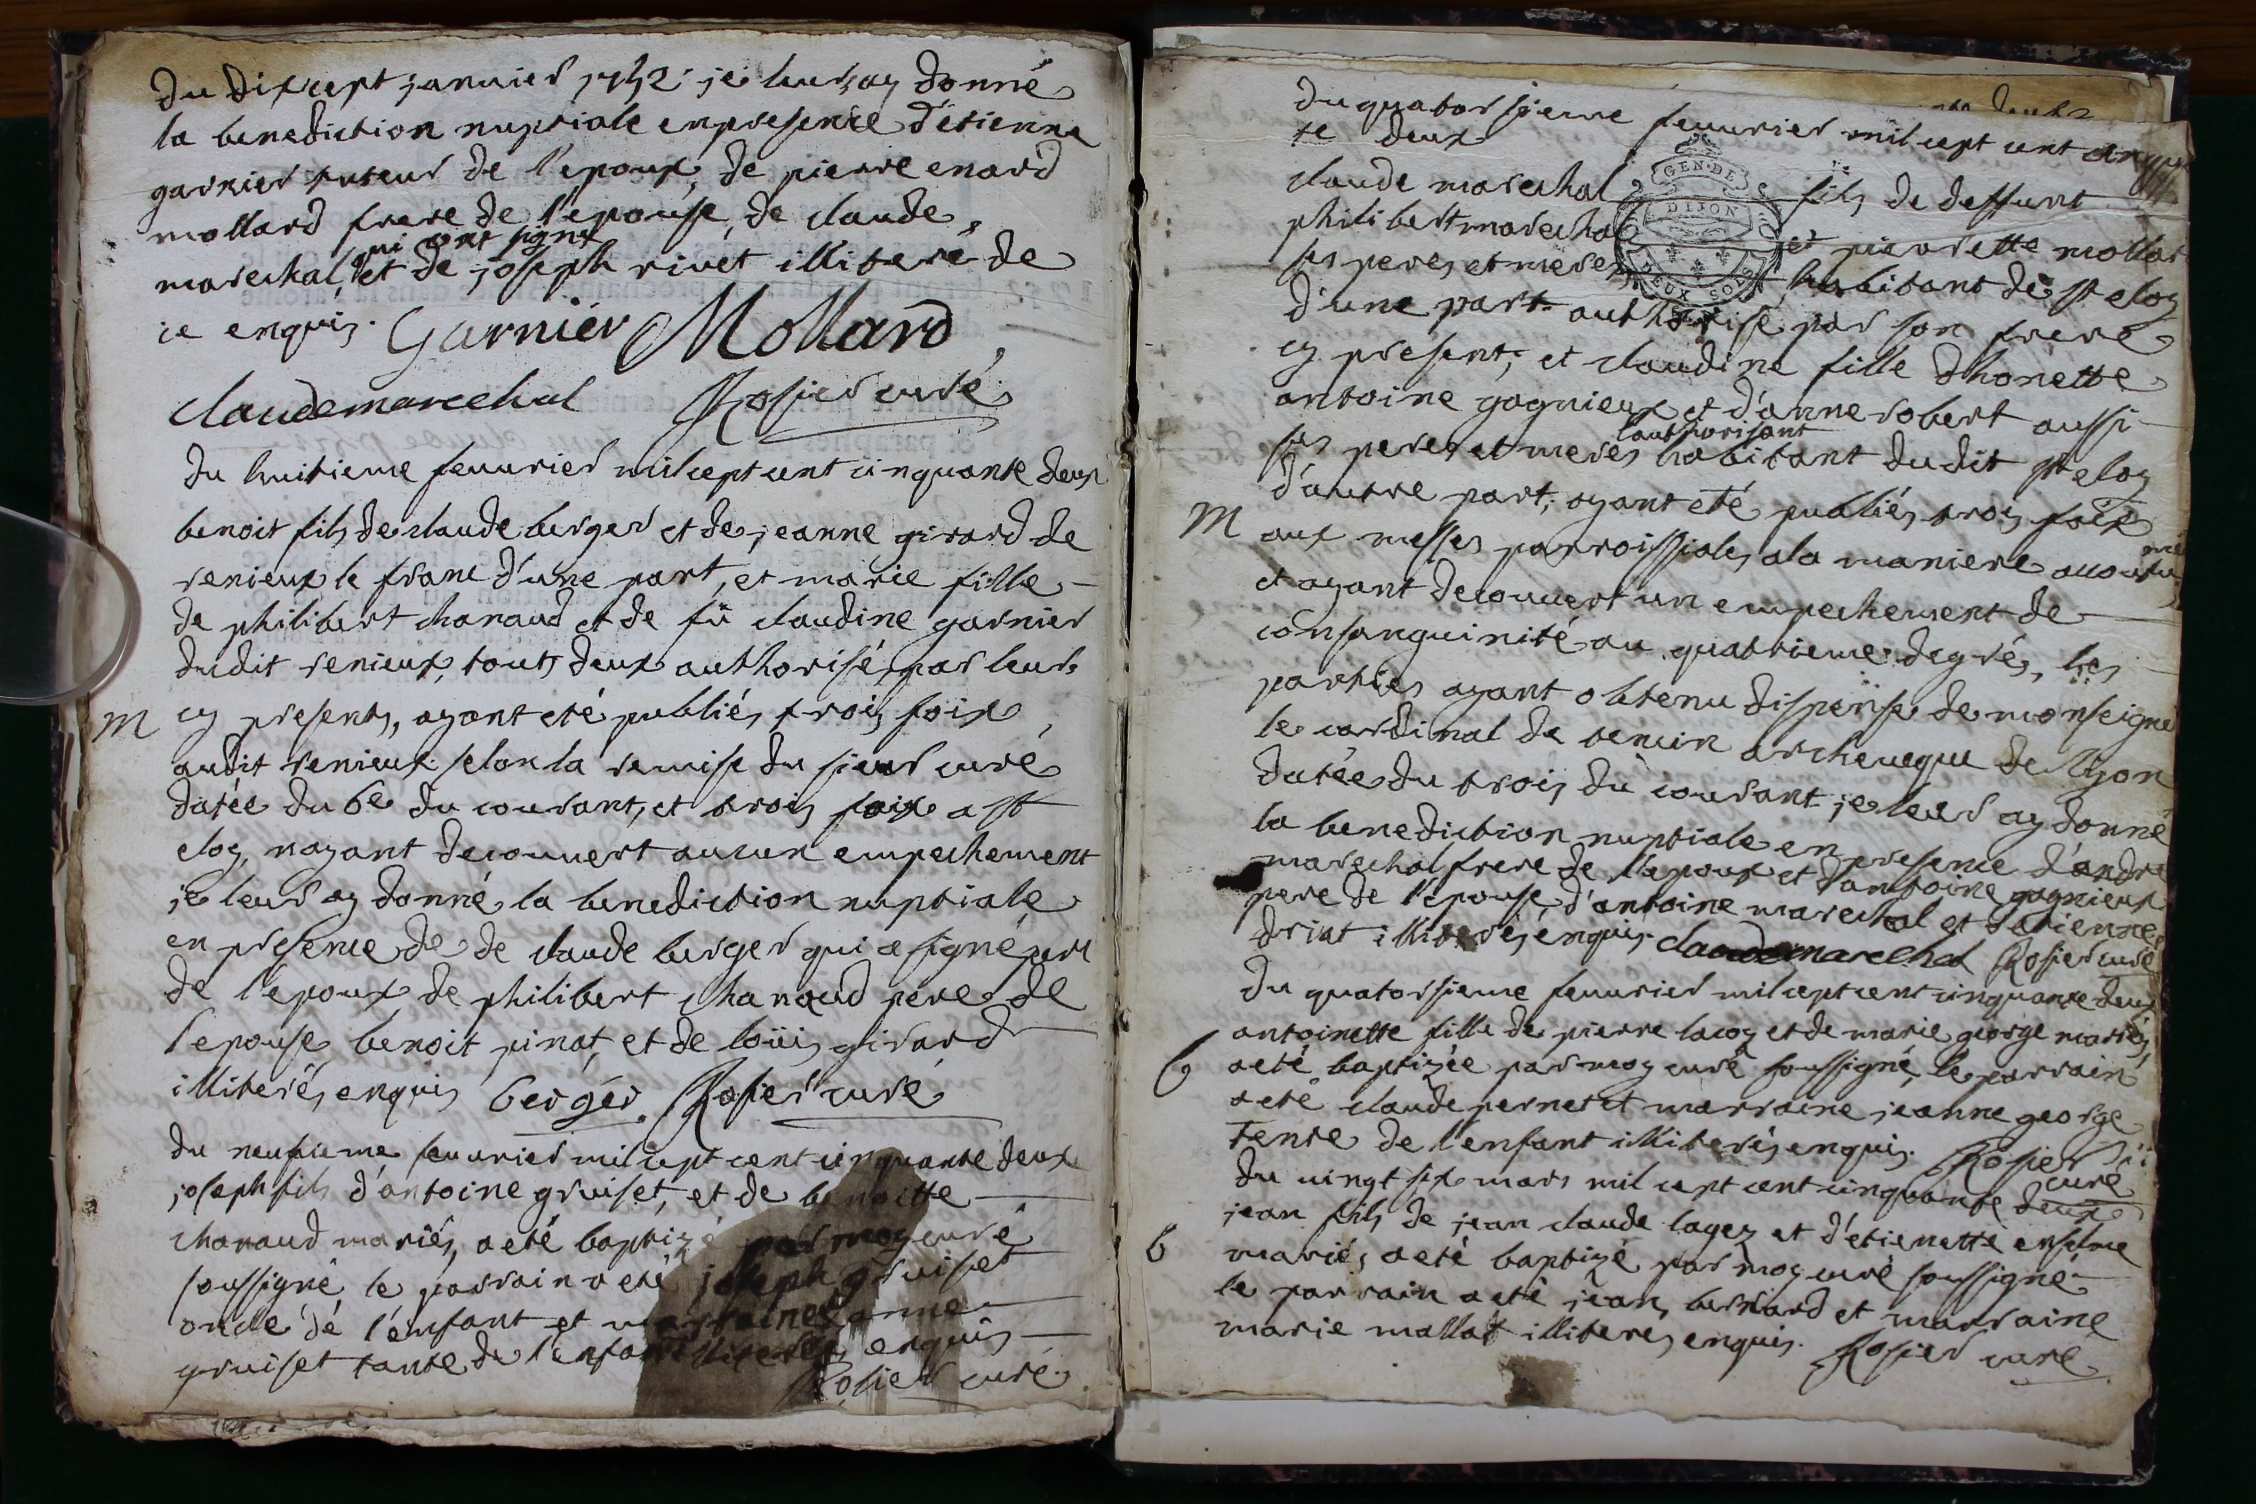 du dixcept januier 1752 je leur ay donné
la benediction nuptiale enpresence d'étienne
garnier tuteur de l'epoux, de pierre enard
mollard frere de l'epouse, de claude
qui ont signé
marechal, et de joseph rivet illiteré de
ce enquis. Garnier Mollard
claude marcechal Rosier curé
du huitieme feuurier mil cept cent cinquante deux
benoit fils de claude berger et de jeanne girard de
renieux le franc d'une part, et marie fille
de philibert charaud et de fû claudine garnier
dudit renieux, touts deux authorisé par leurs
M cy presents, ayant eté publiés trois foix
audit renieux selon la remise du sieur curé
datée du 6e du courant, et trois foix a st
eloy, nayant decouuert aucun empechement
je leur ay donné la benediction nuptiale
en presence de de claude berger qui a signé pere
de l'epoux de philibert charaud pere de
l'epouse benoit pinat, et de loüis girard
illiterés enquis berger. Rosier curé
du neufieme feuurier mil cept cent cinquante deux
joseph fils d'antoine gruiset, et de benoitte
charaud mariés, a eté baptizé par moy curé
soussigné le parrain a eté joseph gruiset
oncle de l'enfant et marraine anne
gruiset tante de l'enfant illiterés enquis
Rosier curé.
du quatorsieme feuurier mil cept cent cinquan
te deux
GEN. DE
DIJON
DEUX SOLS
claude marechal fils de deffunt
philibert marechal et pierrette mollar
ses peres et meres habitant de st eloy
d'une part authorisé par son frere
cy present, et claudine fille d'honette
antoine gagnieux et d'anne robert aussi
l'authorisant
ses peres et meres habitant dudit st eloy
d'autre part, ayant eté publiés trois foix
M aux messes parroissiales a la maniere accoutu
mée
et ayant decouuert un empechement de
consanguinité au quatrieme degrés, les
parties ayant obtenu dispense de monseigne
le cardinal de tencin archeueque de lyon
datée du trois du courant je leur ay donné
la benediction nuptiale en presence d'andre
marechal frere de l'epoux et d'antoine gagnieux
pere de l'epouse, d'antoine marechal et d'etienne
driat illiterés enquis. claude marcechal Rosier curé
du quatorsieme feuurier mil cept cent cinquante deux
antoinette fille de pierre lacoy et de marie george mariés
b a eté baptizée par moy curé soussigné, le parrain
a eté claude pernet et marraine jeanne george
tente de l'enfant illiterés enquis. Rosier
curé
du uingt six mars mil cept cent cinquante deux
jean fils de jean claude lagey et d'etienette enselme
b mariés a eté baptizé par moy curé soussigné
le parrain a eté jean bernard et marraine
marie mallat illiteres enquis. Rosier curé